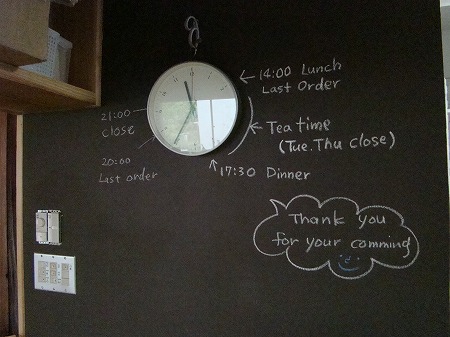 14:00 Lunch
Last Order
Tea time
(Tue. Thu close)
17:30 Dinner
20:00
Last order
21:00
close
Thank you
for your comming